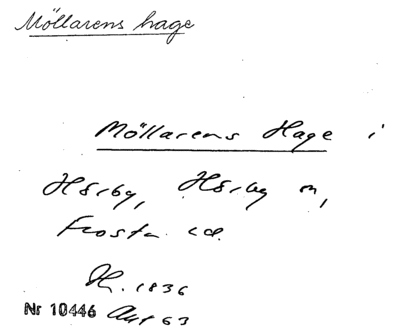 Möllarens hage
Möllarens Hage i
Hörby, Hörby sn,
Frosta hd.
1836
Nr 10446 Akt 63